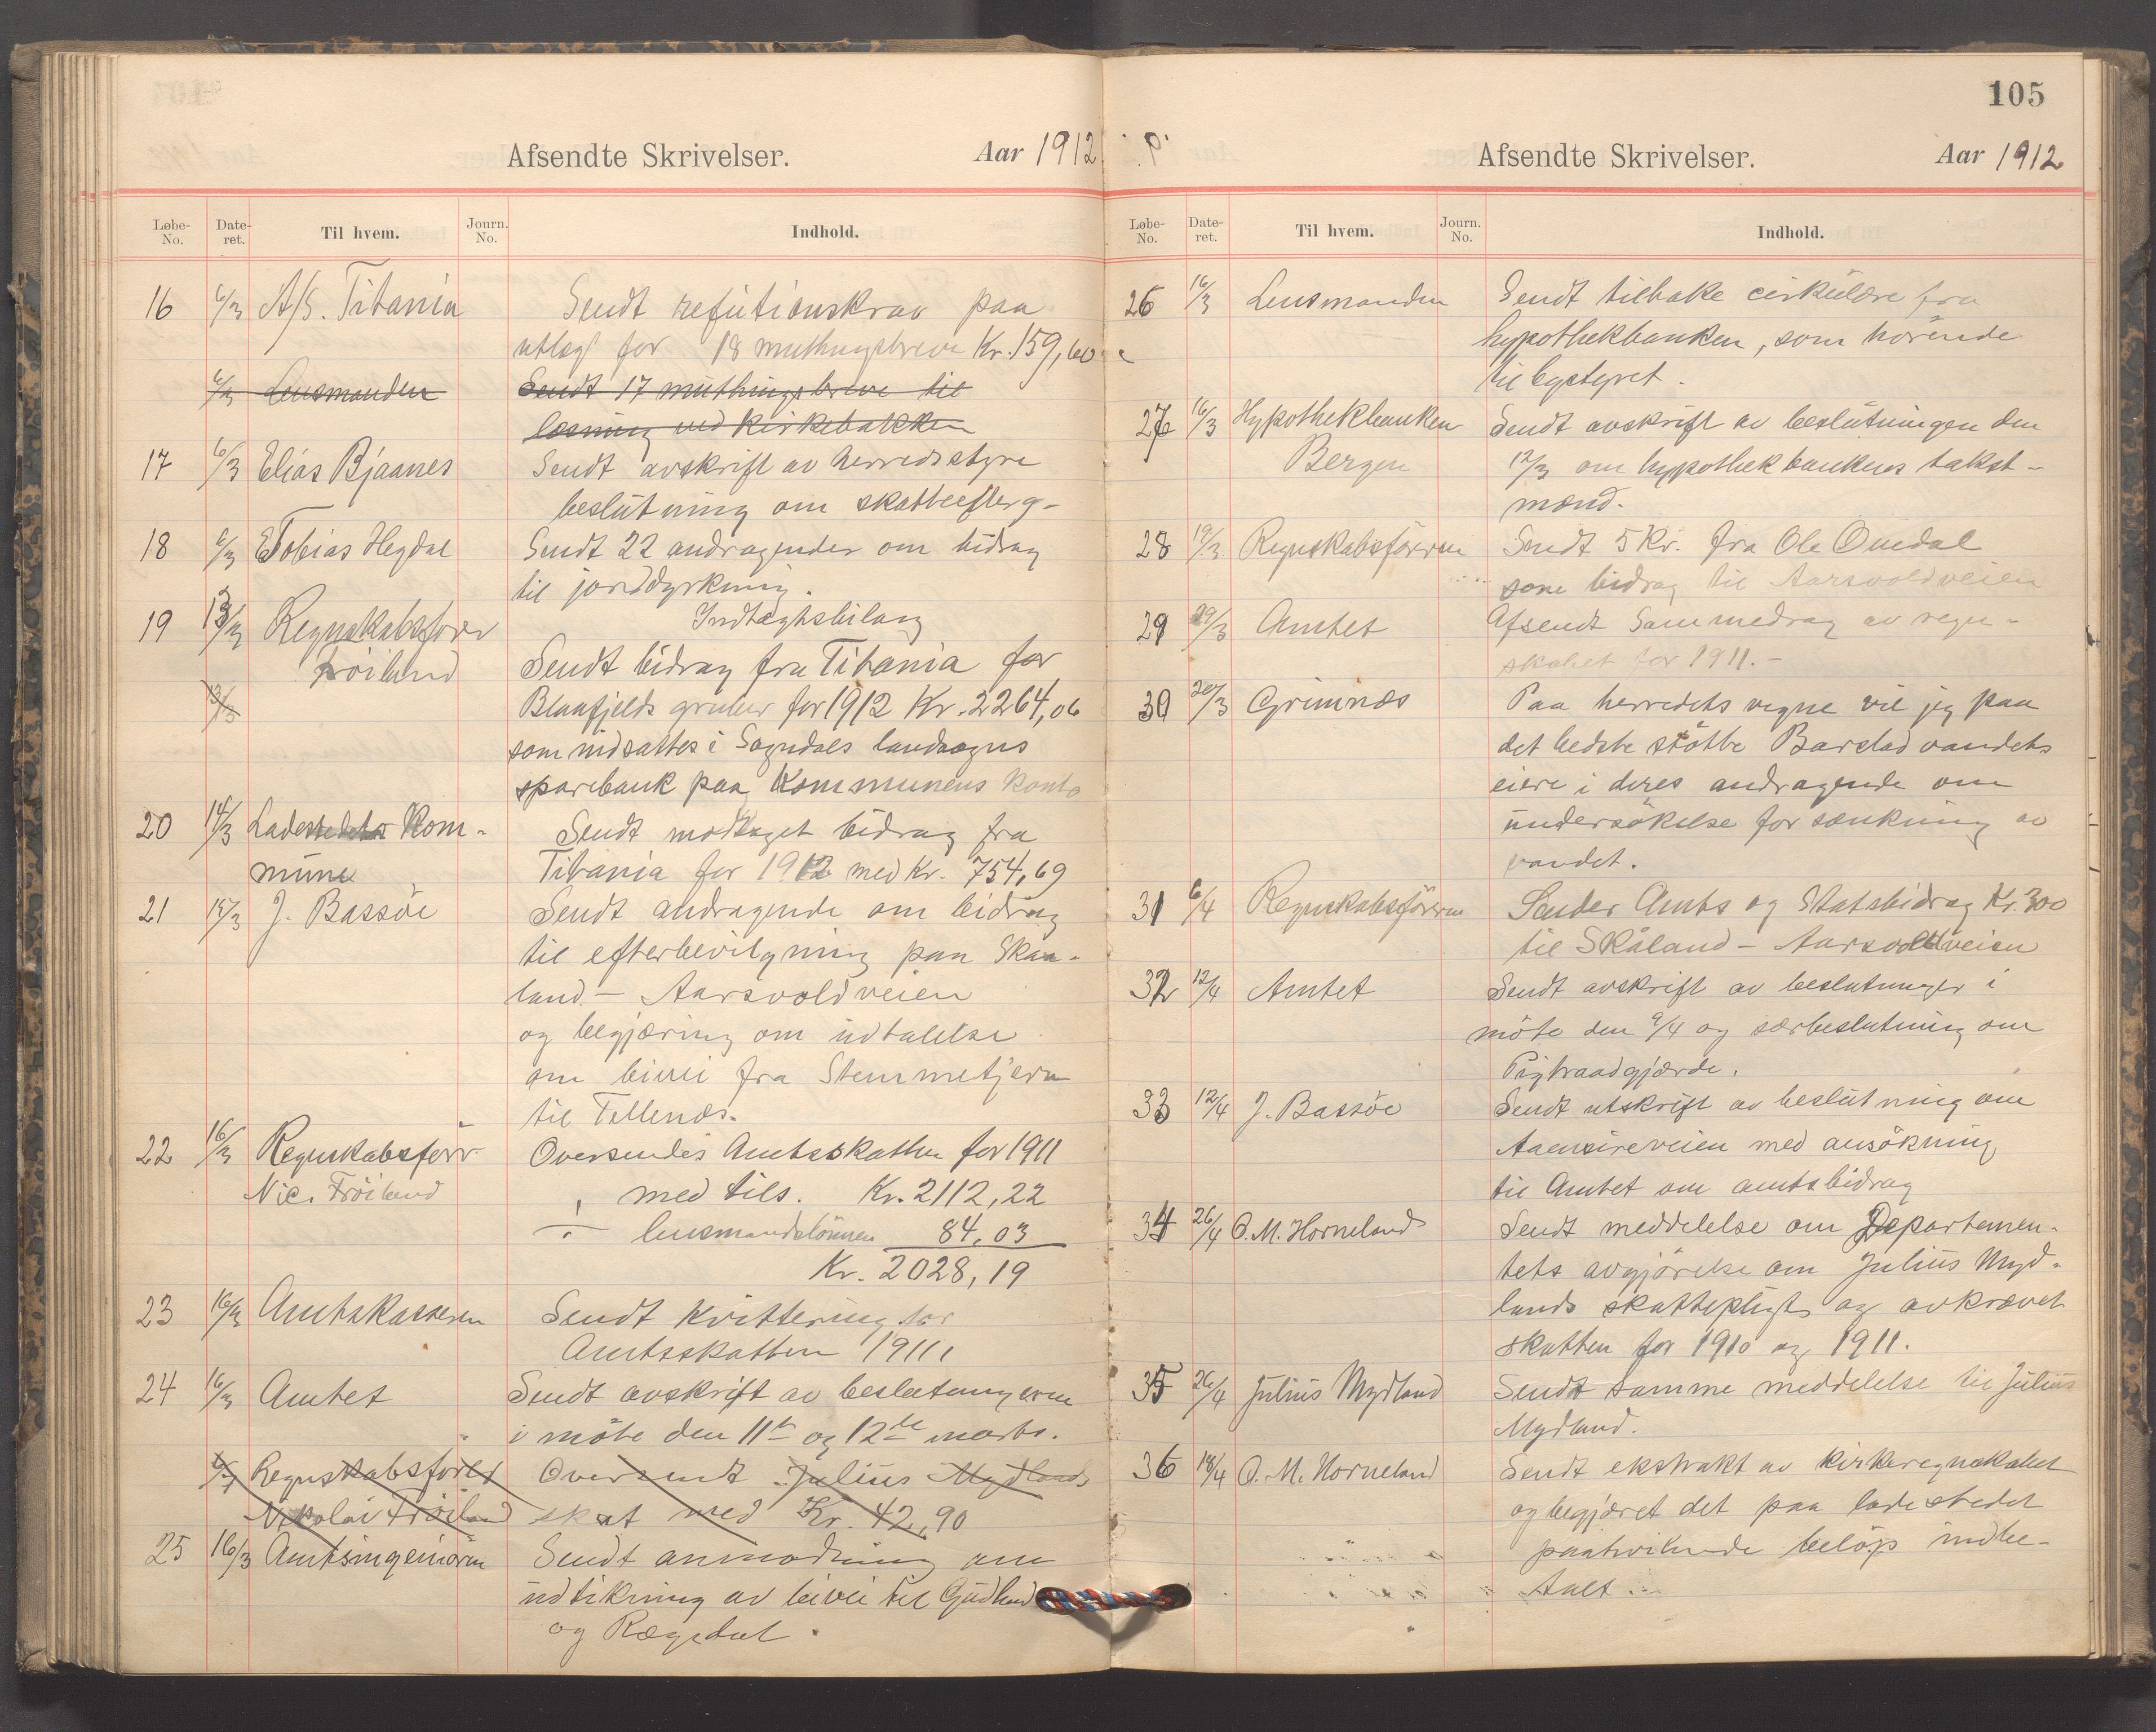 Afsendte Skrivelser. Aar 1912
Løbe-No. Date-ret. Til hvem. Journ. No. Indhold.
16 6/3 A/S. Titania Sendt refutionskrav paa
utlegg for 18 muthingsbreve Kr. 159,60
6/3 Lensmanden Sendt 17 muthingsbreve til
læsning ved kirkebakken
17 6/3 Elias Bjaanes Sendt avskrift av herredsstyre
beslutning om skatteefterg-
18 6/3 Tobias Hegdal Sendt 22 andragender om bidrag
til jorddyrkning.
Indtægtsbilag
19 13/3 Regnskabsfører
Frøiland Sendt bidrag fra Titania for
13/3 Blaafjelds gruber for 1912 Kr. 2264,06
som indsattes i Sogndals landsogns
sparebank paa Kommunens konto
20 14/3 Ladestedets Kom- Sendt modtaget bidrag fra
mune Titania for 1912 med Kr. 754,69
21 15/3 J. Bassöe Sendt andragende om bidrag
til efterbevilgning paa Skaa-
land - Aarsvoldveien
og begjæring om udtalelse
om bivei fra Stemmetjern
til Tellenæs.
22 16/3 Regnskabsfører Oversendes Amtsskatten for 1911
Nic. Fröiland med tils. Kr. 2112,22
÷ lensmandslönnen 84,03
Kr. 2028,19
23 16/3 Amtskasseren Sendt Kvittering for
Amtsskatten 1911.
24 16/3 Amtet Sendt avskrift av beslutningerne
i möte den 11te og 12te marts.
Regnskabsfører Oversendt Julius Mydlands
Nikolai Fröiland skat med Kr. 42,90
25 16/3 Amtsingeniören Sendt anmodning om
udstikning av bivei til Gudland
og Rægedal.
105
Afsendte Skrivelser. Aar 1912
Løbe-No. Date-ret. Til hvem. Journ. No. Indhold.
26 16/3 Lensmanden Sendt tilbake cirkulære fra
hypothekbanken, som hörende
til bystyret.
27 16/3 Hypothekbanken Sendt avskrift av beslutningen den
Bergen 12/3 om hypothekbankens takst-
mænd.
28 19/3 Regnskabsföreren Sendt 5 Kr. fra Ole Omdal
som bidrag til Aarsvoldveien
29 29/3 Amtet Afsendt Sammedrag av regn-
skabet for 1911.-
30 20/3 Grimnæs Paa herredets vegne vil jeg paa
det bedste stötte Barstadvandets
eiere i deres andragende om
undersökelse for sænkning av
vandet.
31 6/4 Regnskabsföreren Sender Amts og Statsbidrag Kr. 300
til Skåland - Aarsvoldveien
32 12/4 Amtet Sendt avskrift av beslutninger i
möte den 9/4 og særbeslutning om
Pigtraadgjærde.
33 12/4 J. Bassöe Sendt utskrift av beslutning om
Aaensireveien med ansökning
til Amtet om amtsbidrag
34 26/4 O. M. Horneland Sendt meddelelse om Departemen-
tets avgjörelse om Julius Myd-
lands skattepligt og avkrævet
skatten for 1910 og 1911.
35 26/4 Julius Mydland Sendt samme meddelelse til Julius
Mydland.
36 18/4 O. M. Horneland Sendt ekstrakt av kirkeregnskabet
og begjæret det paa ladestedet
paahvilende belöp indbe-
talt.